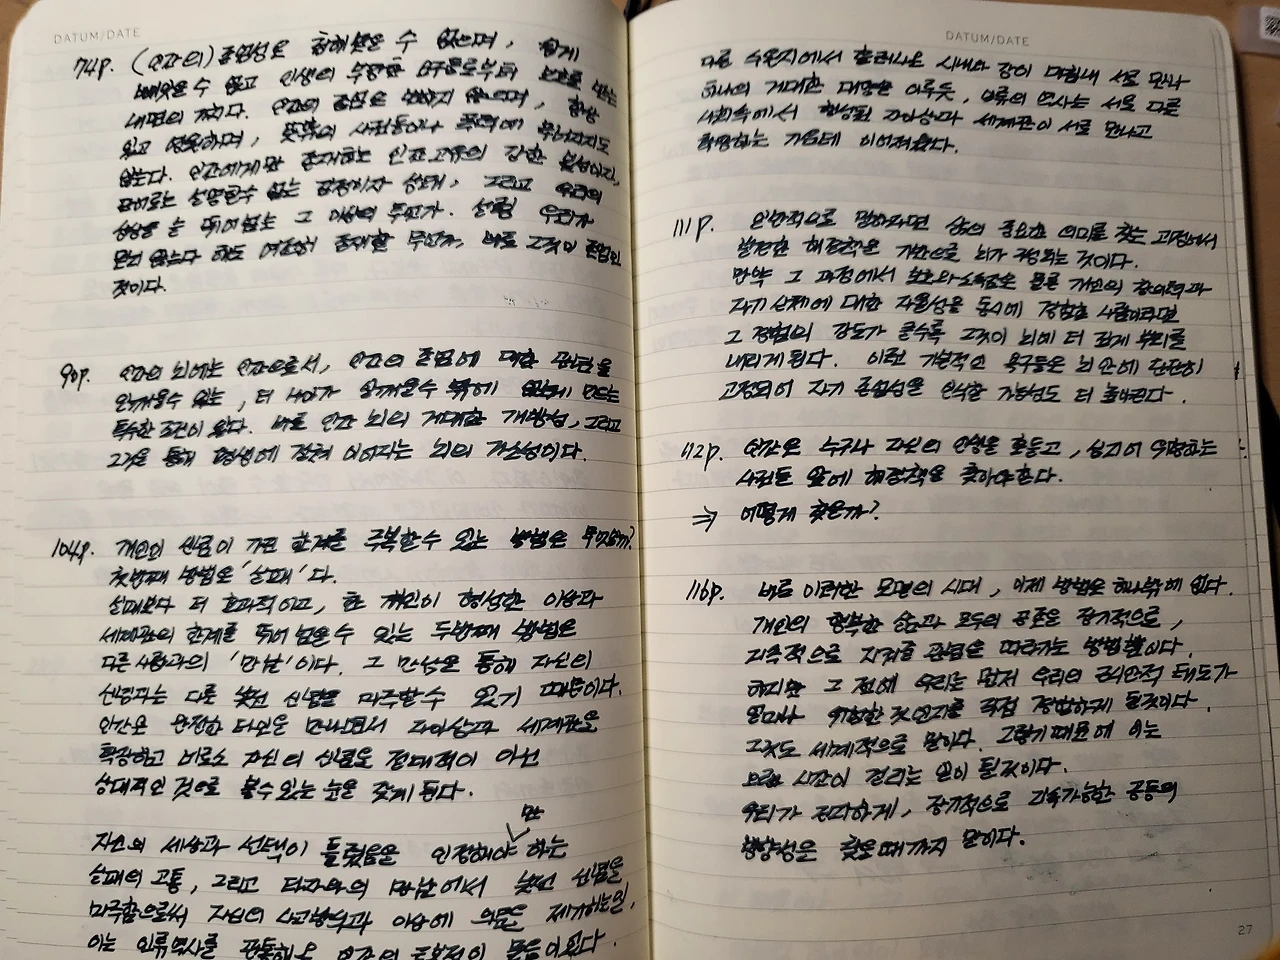 DATUM/DATE
74p. (인간의) 존엄성은 침해받을 수 없으며, 쉽게
빼앗을 수 없고 인생의 부당한 요구들로부터 보호를 받는
내면의 가치다. 인간의 존엄은 변하지 않으며, 항상
있고 영원하며, 폭력에 무너지지도
않는다. 인간에게만 존재하는 인간 고유의 강한 본성이지,
단어로는 설명할수 없는 감정이자 상태, 그리고 우리의
상상을 뛰어넘는 그 이상의 무언가. 설령 우리가
없다 해도 여전히 존재할 무언가, 바로 그것이 존엄인
것이다.
90p. 인간의 뇌에는 인간으로서, 인간의 존엄에 대한 관념을
일깨울수 있는, 더 나아가 일깨울수 밖에 없게 만드는
특수한 조건이 있다. 바로 인간 뇌의 거대한 개방성, 그리고
그것을 통해 평생에 걸쳐 이어지는 뇌의 가소성이다.
104p. 개인의 신념이 가진 한계를 극복할 수 있는 방법은 무엇일까?
첫번째 방법은 '실패'다.
실패보다 더 효과적이고, 한 개인이 형성한 이상과
세계관의 한계를 뛰어 넘을 수 있는 두번째 방법은
다른 사람과의 '만남'이다. 그 만남을 통해 자신의
신념과는 다른 낯선 신념을 마주할 수 있기 때문이다.
인간은 완전한 타인을 만나면서 자아상과 세계관을
확장하고 비로소 자신의 신념을 절대적이 아닌
상대적인 것으로 볼 수 있는 눈을 갖게 된다.
만
자신의 세상과 선택이 틀렸음을 인정해야 하는
실패의 고통, 그리고 타자와의 만남에서 낯선 신념을
마주함으로써 자신의 사고방식과 이상에 의문을 제기하는일,
이는 인류역사를 관통해온 인간의 몫이었다.
DATUM/DATE
다른 수원지에서 흘러나온 시내와 강이 마침내 서로 만나
하나의 거대한 대양을 이루듯, 인류의 역사는 서로 다른
사회속에서 형성된 자아상과 세계관이 서로 만나고
확장하는 가운데 이어져왔다.
111p. 일반적으로 말하자면 삶의 중요한 의미를 찾는 과정에서
발견한 해결책을 기반으로 뇌가 구성되는 것이다.
만약 그 과정에서 보호와 소속감은 물론 개인의 창의력과
자기 신체에 대한 자율성을 동시에 경험한 사람이라면
그 경험의 강도가 클수록 그것이 뇌에 더 깊게 뿌리를
내리게 된다. 이런 기본적인 욕구들은 뇌 안에 단단히
고정되어 자기 존엄성을 인식할 가능성도 더 높아진다.
112p. 인간은 누구나 자신의 인생을 흔들고, 심지어 위협하는
사건들 앞에 해결책을 찾아야 한다.
⇒ 어떻게 찾을까?
116p. 바로 이러한 문명의 시대, 이제 방법은 하나밖에 없다.
개인의 행복한 삶과 모두의 공존을 장기적으로,
지속적으로 지켜줄 관념을 따라가는 방법뿐이다.
하지만 그 전에 우리는 먼저 우리의 근시안적 태도가
얼마나 위험한 것인지를 직접 경험하게 될것이다.
그것도 세계적으로 말이다. 그렇기 때문에 이는
오랜 시간이 걸리는 일이 될것이다.
우리가 진지하게, 장기적으로 지속가능한 공동의
방향성을 찾을때까지 말이다.
27